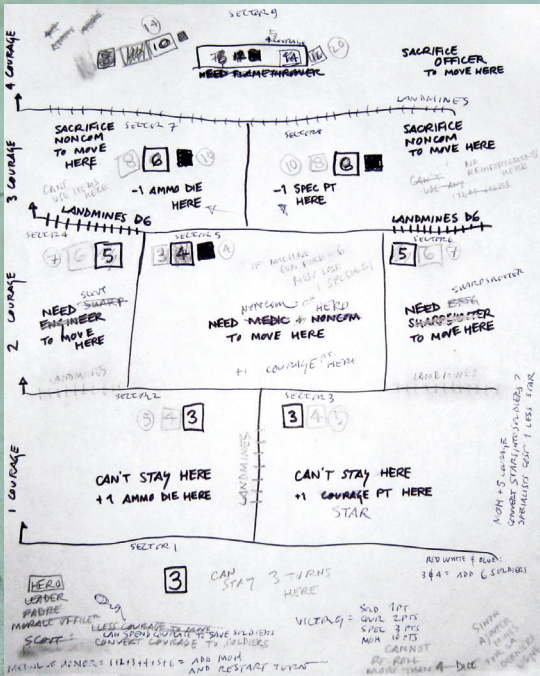 SECTOR 9
4 COURAGE
14
10
4 COURAGE
14
16
20
NEED FLAMETHROWER
SACRIFICE
OFFICER
TO MOVE HERE
LANDMINES
3 COURAGE
SECTOR 7
SACRIFICE
NONCOM
TO MOVE
HERE
8
6
10
CAN'T
USE ITEMS
HERE
-1 AMMO DIE
HERE
SECTOR 8
10
8
6
-1 SPEC PT
HERE
SACRIFICE
NONCOM
TO MOVE
HERE
NO
REINFORCEMENTS
HERE
CAN'T
USE ANY
LANDMINES D6
LANDMINES D6
2 COURAGE
SECTOR 4
7 6 5
SCOUT
NEED SHARP
ENGINEER
TO MOVE
HERE
LANDMINES
SECTOR 5
3 4
4
IF MACHINE
GUN FIRE = 6
MUST LOSE
1 SPECIALIST
NONCOM OR HERO
NEED MEDIC + NONCOM
TO MOVE HERE
+1 COURAGE PT HERE
SECTOR 6
5 6 7
SHARPSHOOTER
NEED
SHARPSHOOTER
TO MOVE HERE
LANDMINES
1 COURAGE
SECTOR 2
5 4 3
CAN'T STAY HERE
+1 AMMO DIE HERE
LANDMINES
SECTOR 3
3 4 5
CAN'T STAY HERE
+1 COURAGE PT HERE
STAR
MOH + 5 COURAGE
CONVERT STARS INTO SOLDIERS?
SPECIALISTS COST 1 LESS STAR
SECTOR 1
3
CAN
STAY 3 TURNS
HERE
RED WHITE & BLUE:
3 & 4 = ADD 6 SOLDIERS
HERO
LEADER
PADRE
MORALE OFFICER
SCOUT:
LESS COURAGE TO MOVE
CAN SPEND COURAGE TO SAVE SOLDIERS
CONVERT COURAGE TO SOLDIERS
MEDAL OF HONOR = 1+2+3+4+5+6 = ADD MOH
AND RESTART TURN
VICTORY =
SOLD 1 PT
COUR 2 PTS
SPEC 3 PTS
MOH 10 PTS
CANNOT
RE-ROLL
MORE THAN 4 DICE
SINON
AJOUTER